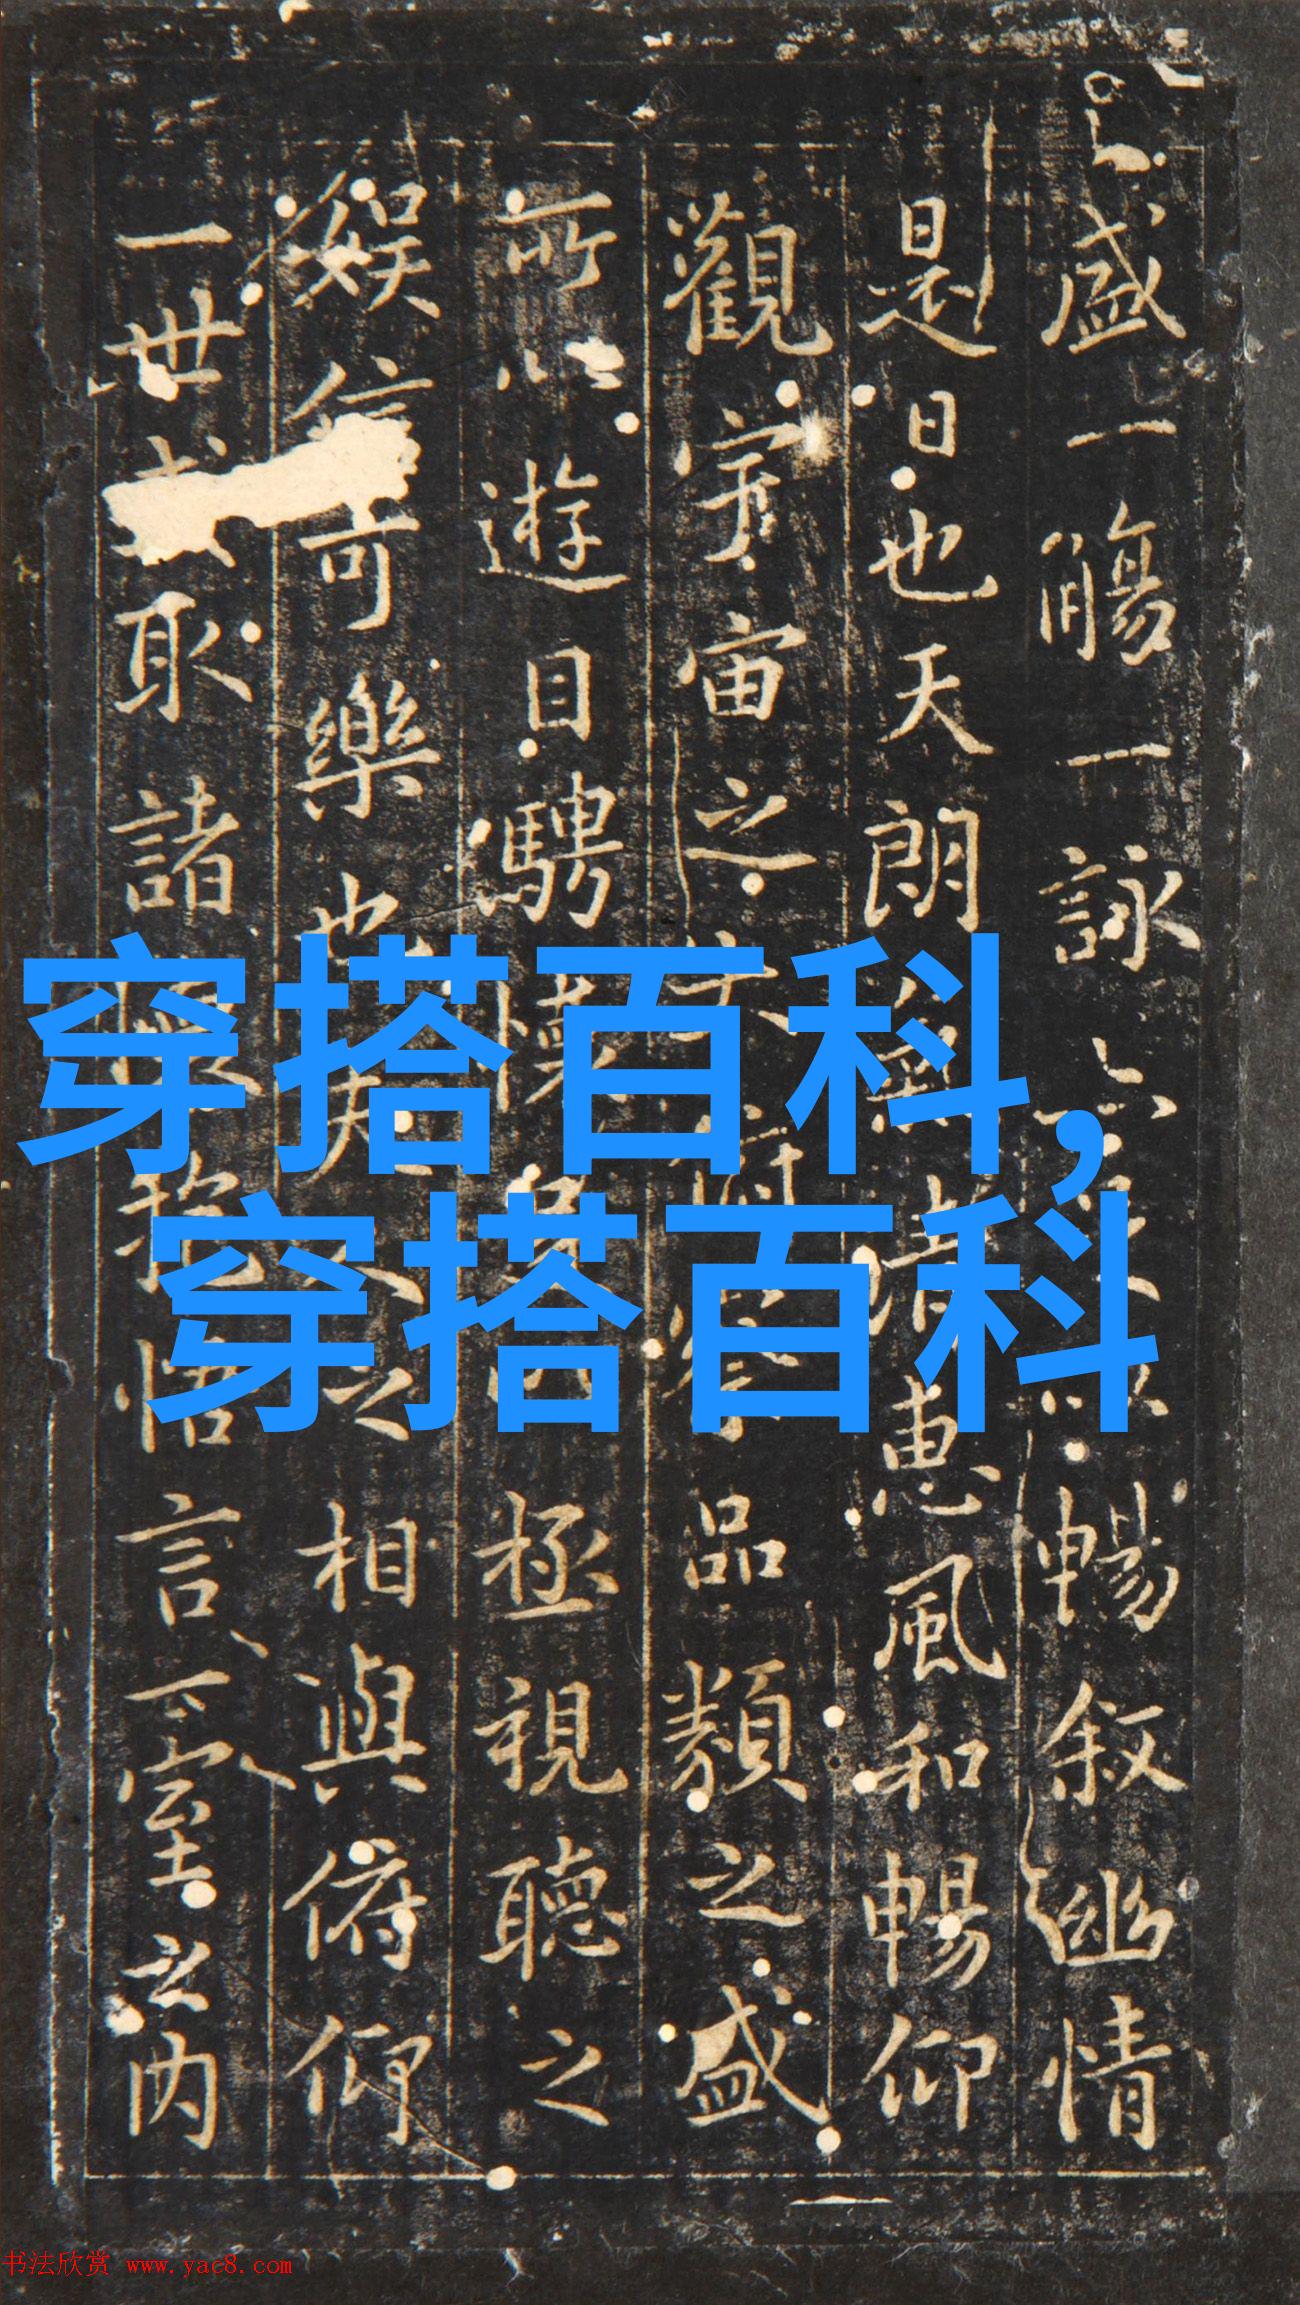 盛一觴一詠亦足以暢叙幽情
是日也天朗氣清惠風和暢仰
觀宇宙之大俯察品類之盛
所以遊目騁懷足以極視聽之
娱信可樂也夫人之相與俯仰
一世或取諸懷抱悟言一室之内
穿搭百科,
穿搭百科
书法欣赏 www.yac8.com